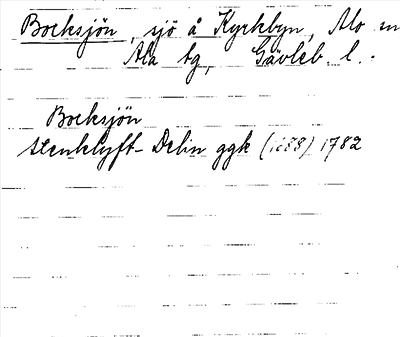 Bocksjön, sjö å Kyrkbyn, Alo sn
Ala tg, Gävleb. l.
Bocksjön
Stenklyft-Delin ggk (ic88) 1782